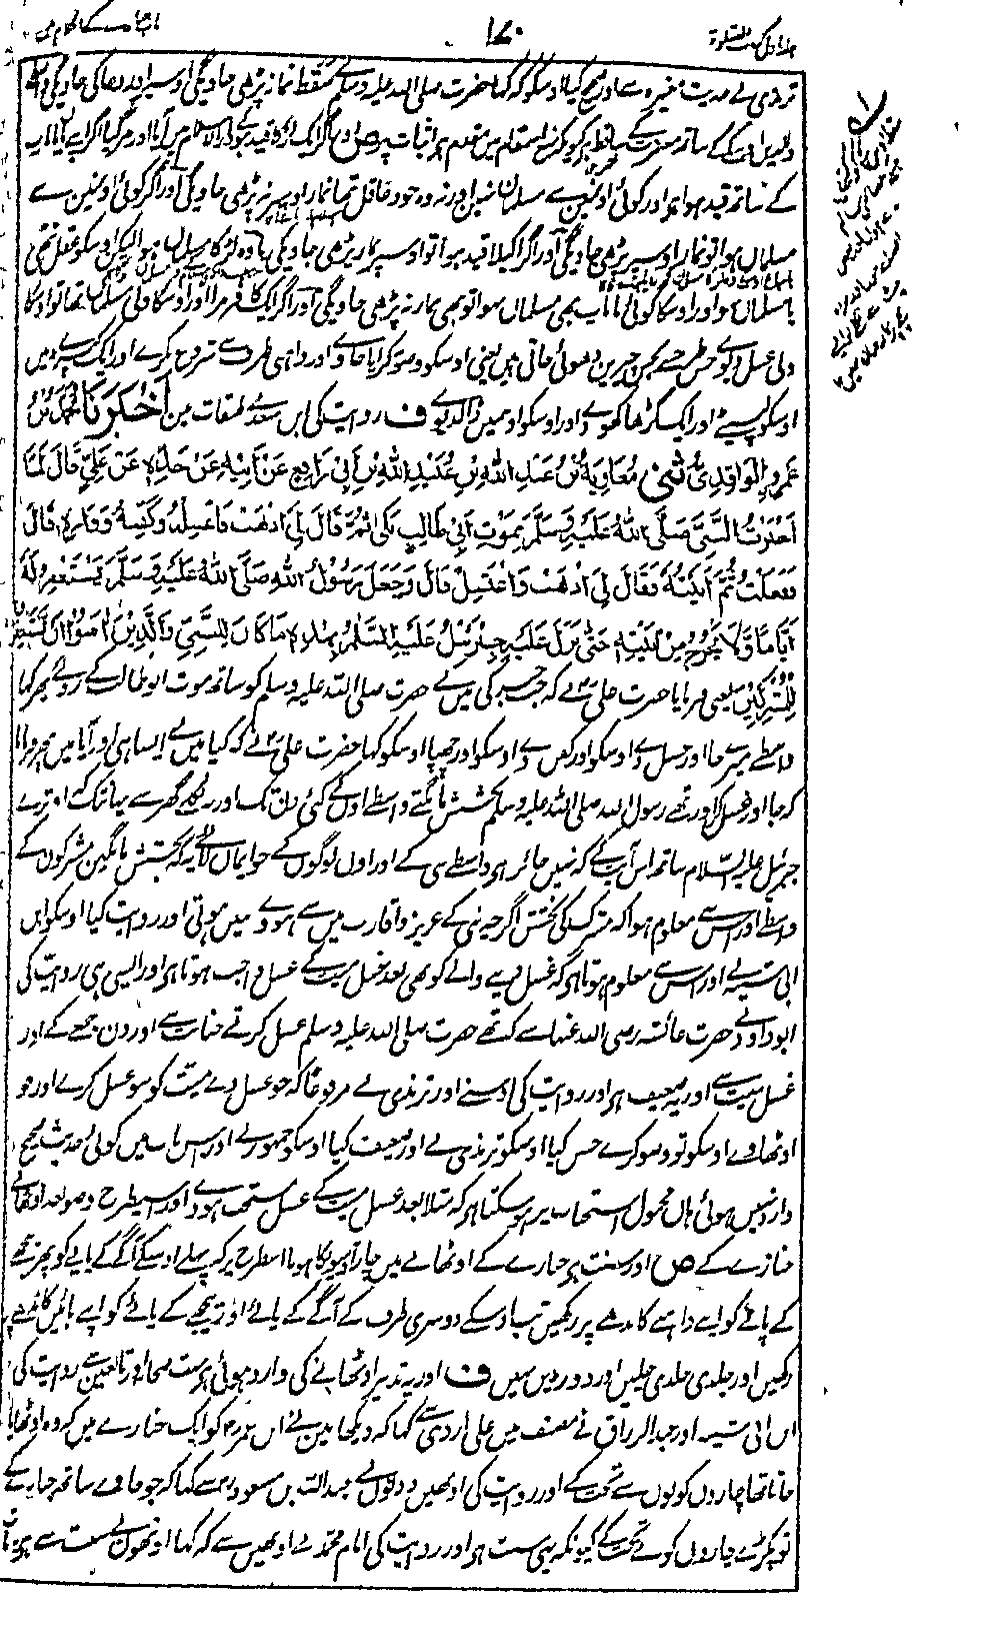 ۱۷۰
ترمذی نے حدیث مغیرہ سے اور صحیح کہا اوسکو کہ کہا حضرت صلی اللہ علیہ وسلم نے سقط نماز پڑھی جاویگی اوسپر اور دعا کی جاویگی
کے ساتھ قید ہوا ہو اور کوئی اونمین سے مسلمان نہین اور نہ وہ خود عاقل تھا نماز اوسپر نہ پڑھی جاویگی اور اگر کوئی اونمین سے
مسلمان ہوا تو نماز اوسپر پڑھی جاویگی اور اگر اکیلا قید ہوا تو اوسپر نماز پڑھی جاویگی یا وہ لڑکا مسلمان ہوا لیکن اوسکو عقل تھی
یا مسلمان ہوا اور اوسکا کوئی ما باپ بھی مسلمان ہوا تو بھی نماز نہ پڑھی جاویگی اور اگر ایک کافر مرا اور اوسکا ولی مسلمان تھا تو اوسکا
ولی غسل دیوے جس طرح نجس چیزین دھوئی جاتی ہین یعنی اوسکو وضو کرایا جاوے اور داہنی طرف سے شروع کرے اور ایک کپڑے مین
اوسکو لپیٹے اور ایک گڑھا کھودے اور اوسکو اوسمین ڈالدیوے ف روایت کی ابن سعد نے طبقات مین اَخْبَرَنَا مُحَمَّدُ بْنُ
عُمَرَ الْوَاقِدِیُّ ثَنِی مُعَاوِیَةُ بْنُ عَبْدِ اللّٰهِ بْنِ عُبَیْدِ اللّٰهِ بْنِ اَبِیْ رَافِعٍ عَنْ اَبِیْهِ عَنْ جَدِّهٖ عَنْ عَلِیٍّ قَالَ لَمَّا
اَخْبَرْتُ النَّبِیَّ صَلَّی اللّٰهُ عَلَیْهِ وَسَلَّمَ بِمَوْتِ اَبِیْ طَالِبٍ بَکٰی ثُمَّ قَالَ لِیْ اذْهَبْ فَاغْسِلْهُ وَکَفِّنْهُ وَوَارِهٖ قَالَ
فَفَعَلْتُ ثُمَّ اَتَیْتُهٗ فَقَالَ لِیْ اذْهَبْ وَاغْتَسِلْ قَالَ وَجَعَلَ رَسُوْلُ اللّٰهِ صَلَّی اللّٰهُ عَلَیْهِ وَسَلَّمَ یَسْتَغْفِرُ لَهٗ
اَیَّامًا وَّلَا یَخْرُجُ مِنْ بَیْتِهٖ حَتّٰی نَزَلَ عَلَیْهِ جِبْرَئِیْلُ عَلَیْهِ السَّلَامُ بِهٰذِهٖ مَا کَانَ لِلنَّبِیِّ وَالَّذِیْنَ اٰمَنُوْا اَنْ یَّسْتَغْفِرُوْا
لِلْمُشْرِکِیْنَ یعنی فرمایا حضرت علی نے کہ جب خبر کی مین نے حضرت صلی اللہ علیہ وسلم کو ساتھ موت ابو طالب کے روئے پھر کہا
واسطے میرے جا اور غسل دے اوسکو اور کفن دے اوسکو اور چھپا اوسکو کہا حضرت علی نے کہ کیا مین نے ایسا ہی اور آیا مین پھر فرمایا
کہ جا اور غسل کر اور تھے رسول اللہ صلی اللہ علیہ وسلم بخشش مانگتے واسطے اون کے کئی دن تک اور نہ نکلے گھر سے یہانتک کہ اوترے
جبرئیل علیہ السلام ساتھ اس آیت کے کہ نہین جائز ہے واسطے نبی کے اور اون لوگوں کے جو ایمان لائے یہ کہ بخشش مانگین مشرکون کے
واسطے اور اس سے معلوم ہوا کہ مشرک کی بخشش اگرچہ نبی کے عزیز و اقارب مین سے ہووے نہین ہوتی اور روایت کیا اوسکو ابن
ابی شیبہ نے اور اس سے معلوم ہوتا ہے کہ غسل دینے والے کو بھی بعد غسل میت کے غسل واجب ہوتا ہے اور ایسی ہی روایت کی
ابو داود نے حضرت عائشہ رضی اللہ عنہا سے کہ تھے حضرت صلی اللہ علیہ وسلم غسل کرتے جنابت سے اور دن جمعے کے اور
غسل میت سے اور یہ ضعیف ہے اور روایت کی اوسنے اور ترمذی نے مرفوعا کہ جو غسل دے میت کو سو غسل کرے اور جو
اوٹھاوے اوسکو تو وضو کرے حسن کیا اوسکو ترمذی نے اور ضعیف کیا اوسکو جمہور نے اور اس باب مین کوئی حدیث صحیح
وارد نہین ہوئی ہان محمول استحباب پر ہو سکتا ہے کہ مثلا بعد غسل میت کے غسل مستحب ہووے اور اسیطرح وضو بعد اوٹھانے
جنازے کے ص اور سنت ہے جنازے کے اوٹھانے مین چار آدمیونکا ہونا اسطرح پر کہ پہلے اوسکے آگے کے پائے کو پھر پیچھے
کے پائے کو اپنے داہنے کاندھے پر رکھین تب اوسکے دوسری طرف کے آگے کے پائے اور پیچھے کے پائے کو اپنے بائین کاندھے پر
رکھین اور جلدی جلدی چلین اور دوڑین نہین ف اور یہ تدبیر اوٹھانے کی وارد ہوئی ہے بہت صحابہ اور تابعین سے روایت کی
ابن ابی شیبہ اور عبد الرزاق نے مصنف مین علی ازدی سے کہا کہ دیکھا مین نے ابن عمر کو ایک جنازے مین کہ وہ اوٹھایا
جاتا تھا چاروں کونوں سے تخت کے اور روایت کی اونھین دونوں نے عبد اللہ بن مسعود سے کہا کہ جو جاوے ساتھ جنازے کے
تو پکڑے چاروں کونے تخت کے کیونکہ یہی سنت ہے اور روایت کی امام محمد نے اونھین سے کہ کہا اونھون نے سنت سے ہے